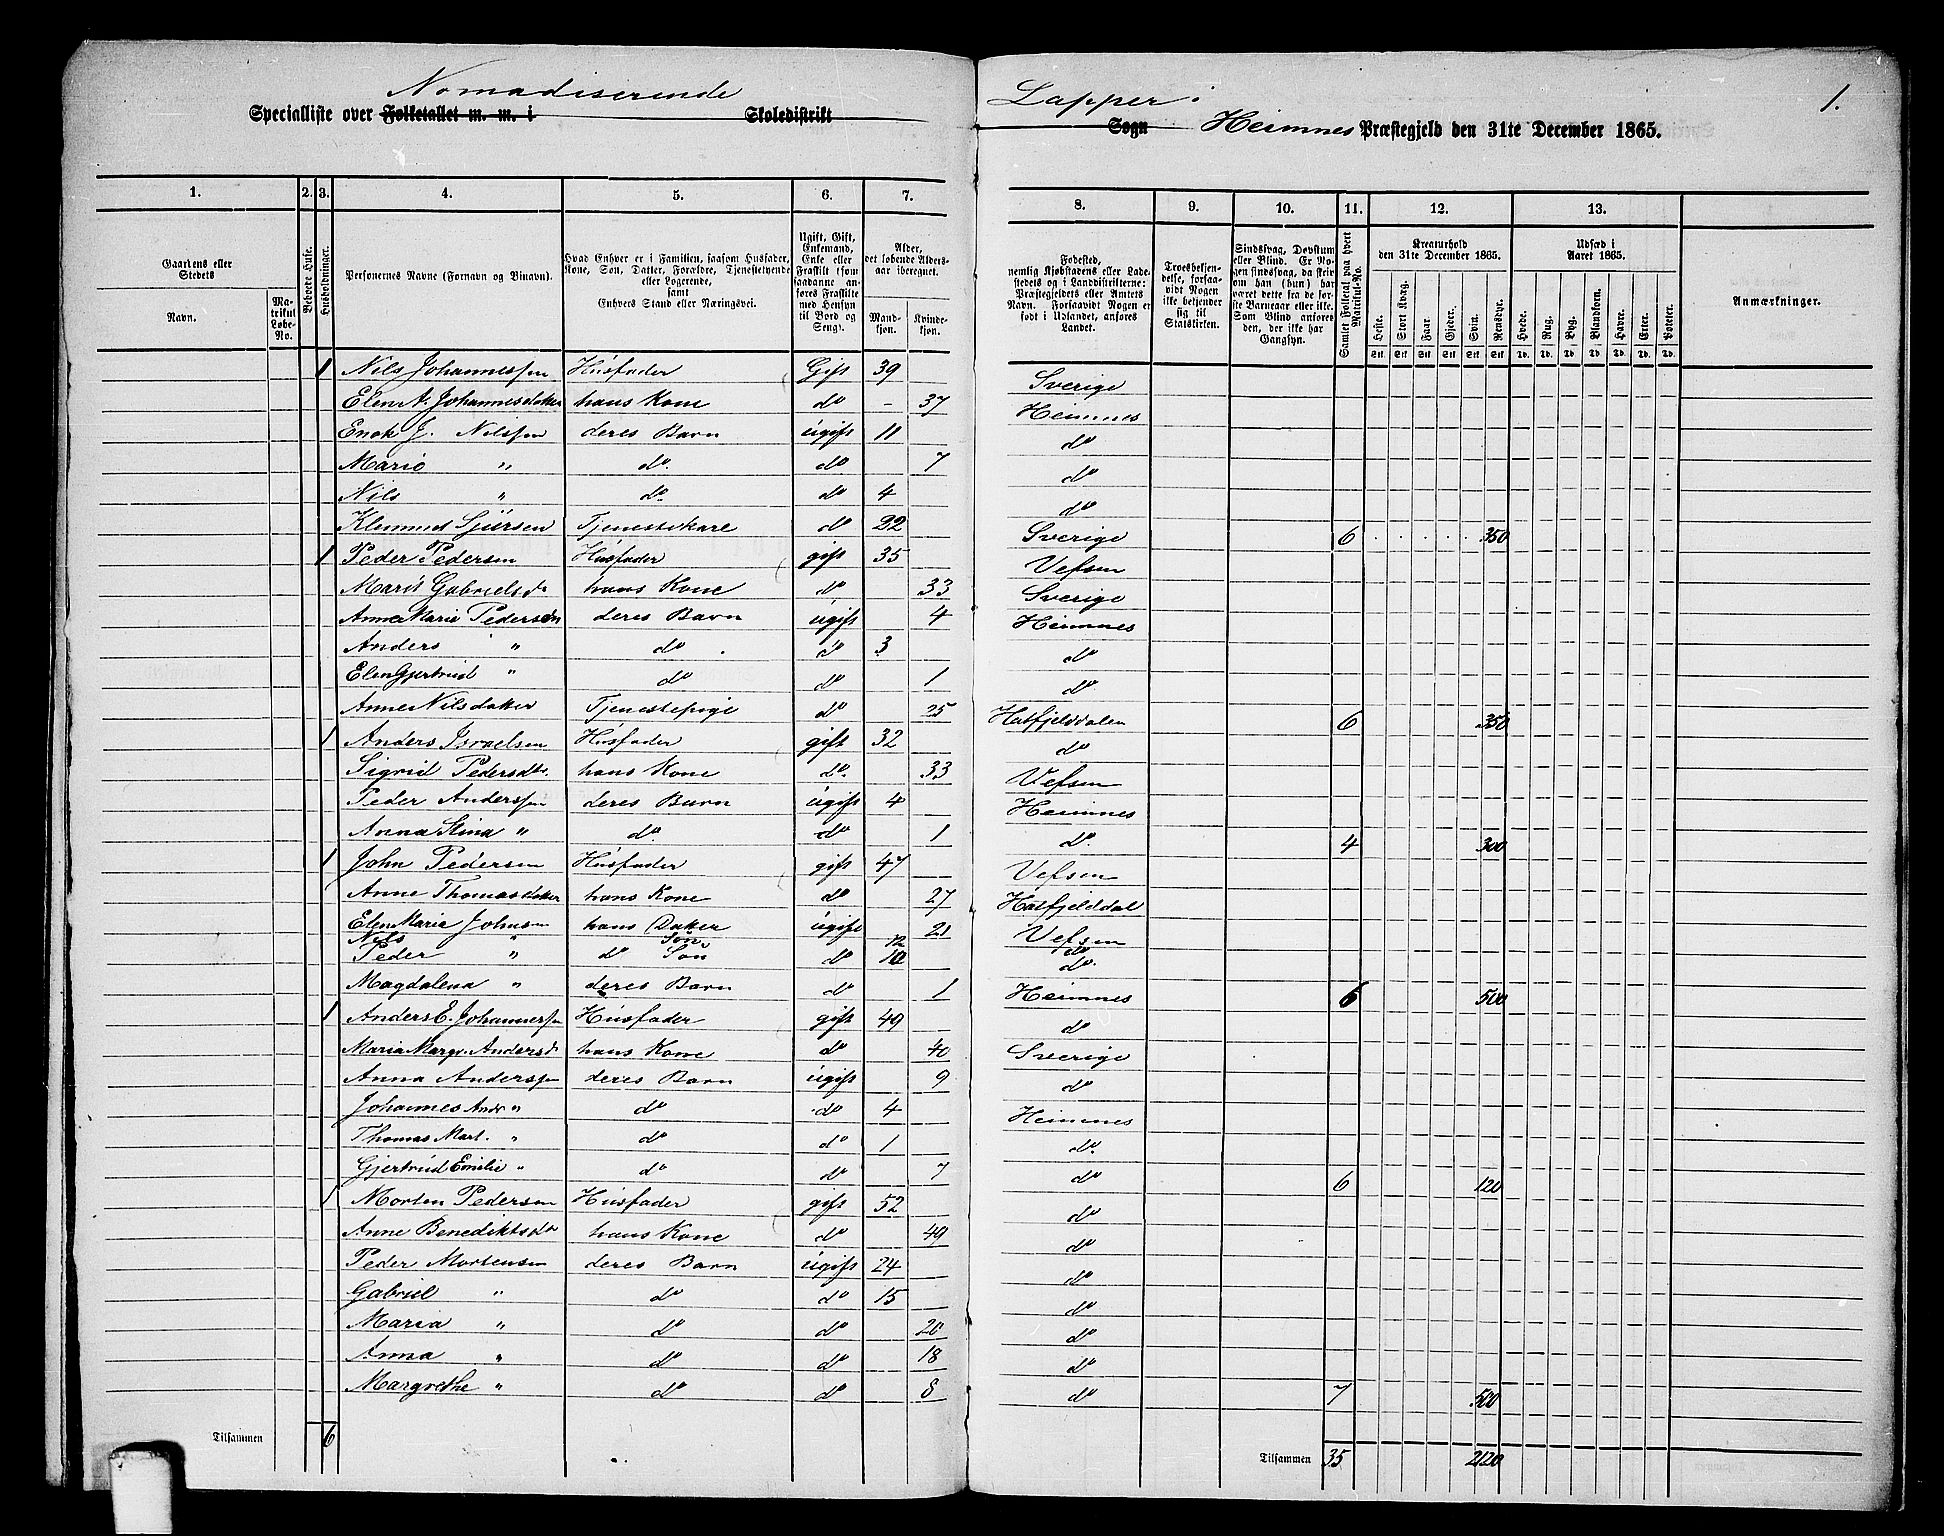 Nomadiserende Lapper i 1.
Specialliste over Folketallet m. m. i Skoledistrikt Sogn Heimnes Præstegjeld den 31te December 1865.
1. 2. 3. 4. 5. 6. 7. 8. 9. 10. 11. 12. 13.
Gaardens eller Stedets
Navn.
Matrikul Løbe-No.
Beboede Huse.
Husholdninger.
Personernes Navne (Fornavn og Binavn).
Hvad Enhver er i Familien, saasom Husfader, Kone, Søn, Datter, Forældre, Tjenestetyende eller Logerende, samt Enhvers Stand eller Næringsvei.
Ugift, Gift, Enkemand, Enke eller Fraskilt (som saadanne anføres Fraskilte med Hensyn til Bord og Seng).
Alder, det løbende Alders-aar iberegnet.
Mand-kjøn.
Kvinde-kjøn.
Fødested, nemlig Kjøbstadens eller Ladestedets og i Landdistrikterne: Præstegjeldets eller Amtets Navn. Forsaavidt Nogen er født i Udlandet, anføres Landet.
Troesbekjendelse, forsaavidt Nogen ikke bekjender sig til Statskirken.
Sindssvag, Døvstum eller Blind. Er Nogen sindssvag, da skriv om han (hun) har været dette fra de første Barneaar eller ikke. Som Blind anføres den, der ikke har Gangsyn.
Samlet Folketal paa hvert Matrikul-No.
Kreaturhold den 31te December 1865.
Heste. Stort Kvæg. Faar. Gjeder. Svin. Rensdyr.
Stk. Stk. Stk. Stk. Stk. Stk.
Udsæd i Aaret 1865.
Hvede. Rug. Byg. Blandkorn. Havre. Erter. Poteter.
Td. Td. Td. Td. Td. Td. Td.
Anmærkninger.
1 Nils Johannessen Husfader Gift 39 Sverige
Elen N. Johannesdatter hans Kone do - 37 Heimnes
Enok J. Nilssen deres Barn ugift 11 do
Mario " do. do 7 do
Nils " do. do 4 do
Klemmet Sjursen Tjenestekare do 22 Sverige 6 350
1 Peder Pedersen Husfader gift 35 Vefsen
Marit Gabrielsdr hans Kone do 33 Sverige
Anne Marie Pedersen deres Barn ugift 4 Heimnes
Anders " do do 3 do
Elen Gjertrud " do do 1 do
Anne Nilsdatter Tjenestepige do 25 Hatfjelddalen 6 350
1 Anders Israelsen Husfader gift 32 do
Sigrid Pedersdtr. hans Kone do. 33 Vefsen
Peder Anderssen deres Barn ugift 4 Heimnes
Anna Stina " do. do 1 do. 4 300
1 John Pedersen Husfader gift 47 Vefsen
Anne Thomasdatter hans Kone do 27 Hatfjelddal
Elen Maria Johnsen hans Datter ugift 21 Vefsen
Nils " Søn 12 do
Peder " do Søn do 10 do.
Magdalena " deres Barn do 1 Heimnes 6 500
1 Anders E. Johannessen Husfader gift 49 do
Maria Margr. Andersd hans Kone do 40 Sverige
Anna Anderssen deres Barn ugift 9 do
Johannes Andr " do do 4 Heimnes
Thomas Mart. " do do 1 do.
Gjertrud Emilie " do do 7 do 6 120
1 Morten Pedersen Husfader gift 52 do
Anne Benediktsdr hans Kone do 49 do
Peder Mortensen deres Barn ugift 24 do
Gabriel " do do 15 do
Maria " do do 20 do
Anna " do do 18 do
Margrethe " do do 8 do 7 500
Tilsammen 6 Tilsammen 35 2120